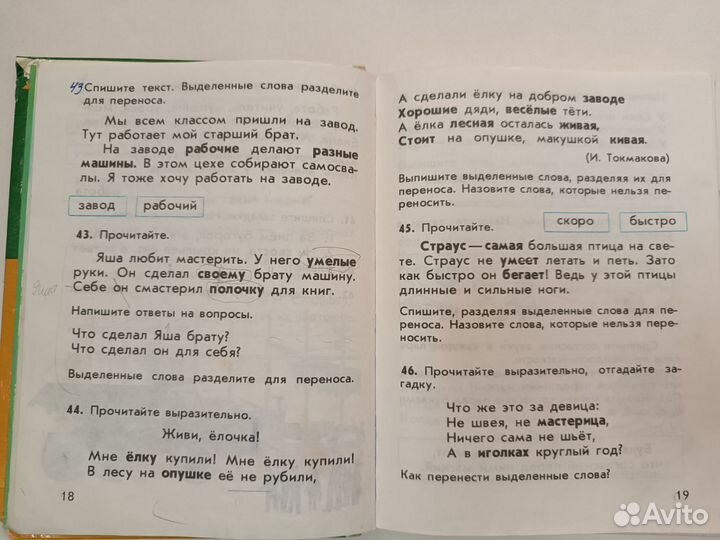 43 Спишите текст. Выделенные слова разделите
для переноса.
Мы всем классом пришли на завод.
Тут работает мой старший брат.
На заводе рабочие делают разные
машины. В этом цехе собирают самосва-
лы. Я тоже хочу работать на заводе.
завод рабочий
43. Прочитайте.
Яша любит мастерить. У него умелые
руки. Он сделал своему брату машину.
Себе он смастерил полочку для книг.
Напишите ответы на вопросы.
Что сделал Яша брату?
Что сделал он для себя?
Выделенные слова разделите для переноса.
44. Прочитайте выразительно.
Живи, ёлочка!
Мне ёлку купили! Мне ёлку купили!
В лесу на опушке её не рубили,
18
А сделали ёлку на добром заводе
Хорошие дяди, весёлые тёти.
А ёлка лесная осталась живая,
Стоит на опушке, макушкой кивая.
(И. Токмакова)
Выпишите выделенные слова, разделяя их для
переноса. Назовите слова, которые нельзя пе-
реносить.
скоро быстро
45. Прочитайте.
Страус—самая большая птица на све-
те. Страус не умеет летать и петь. Зато
как быстро он бегает! Ведь у этой птицы
длинные и сильные ноги.
Спишите, разделяя выделенные слова для пе-
реноса. Назовите слова, которые нельзя пере-
носить.
46. Прочитайте выразительно, отгадайте за-
гадку.
Что же это за девица:
Не швея, не мастерица,
Ничего сама не шьёт,
А в иголках круглый год?
Как перенести выделенные слова?
19
Avito